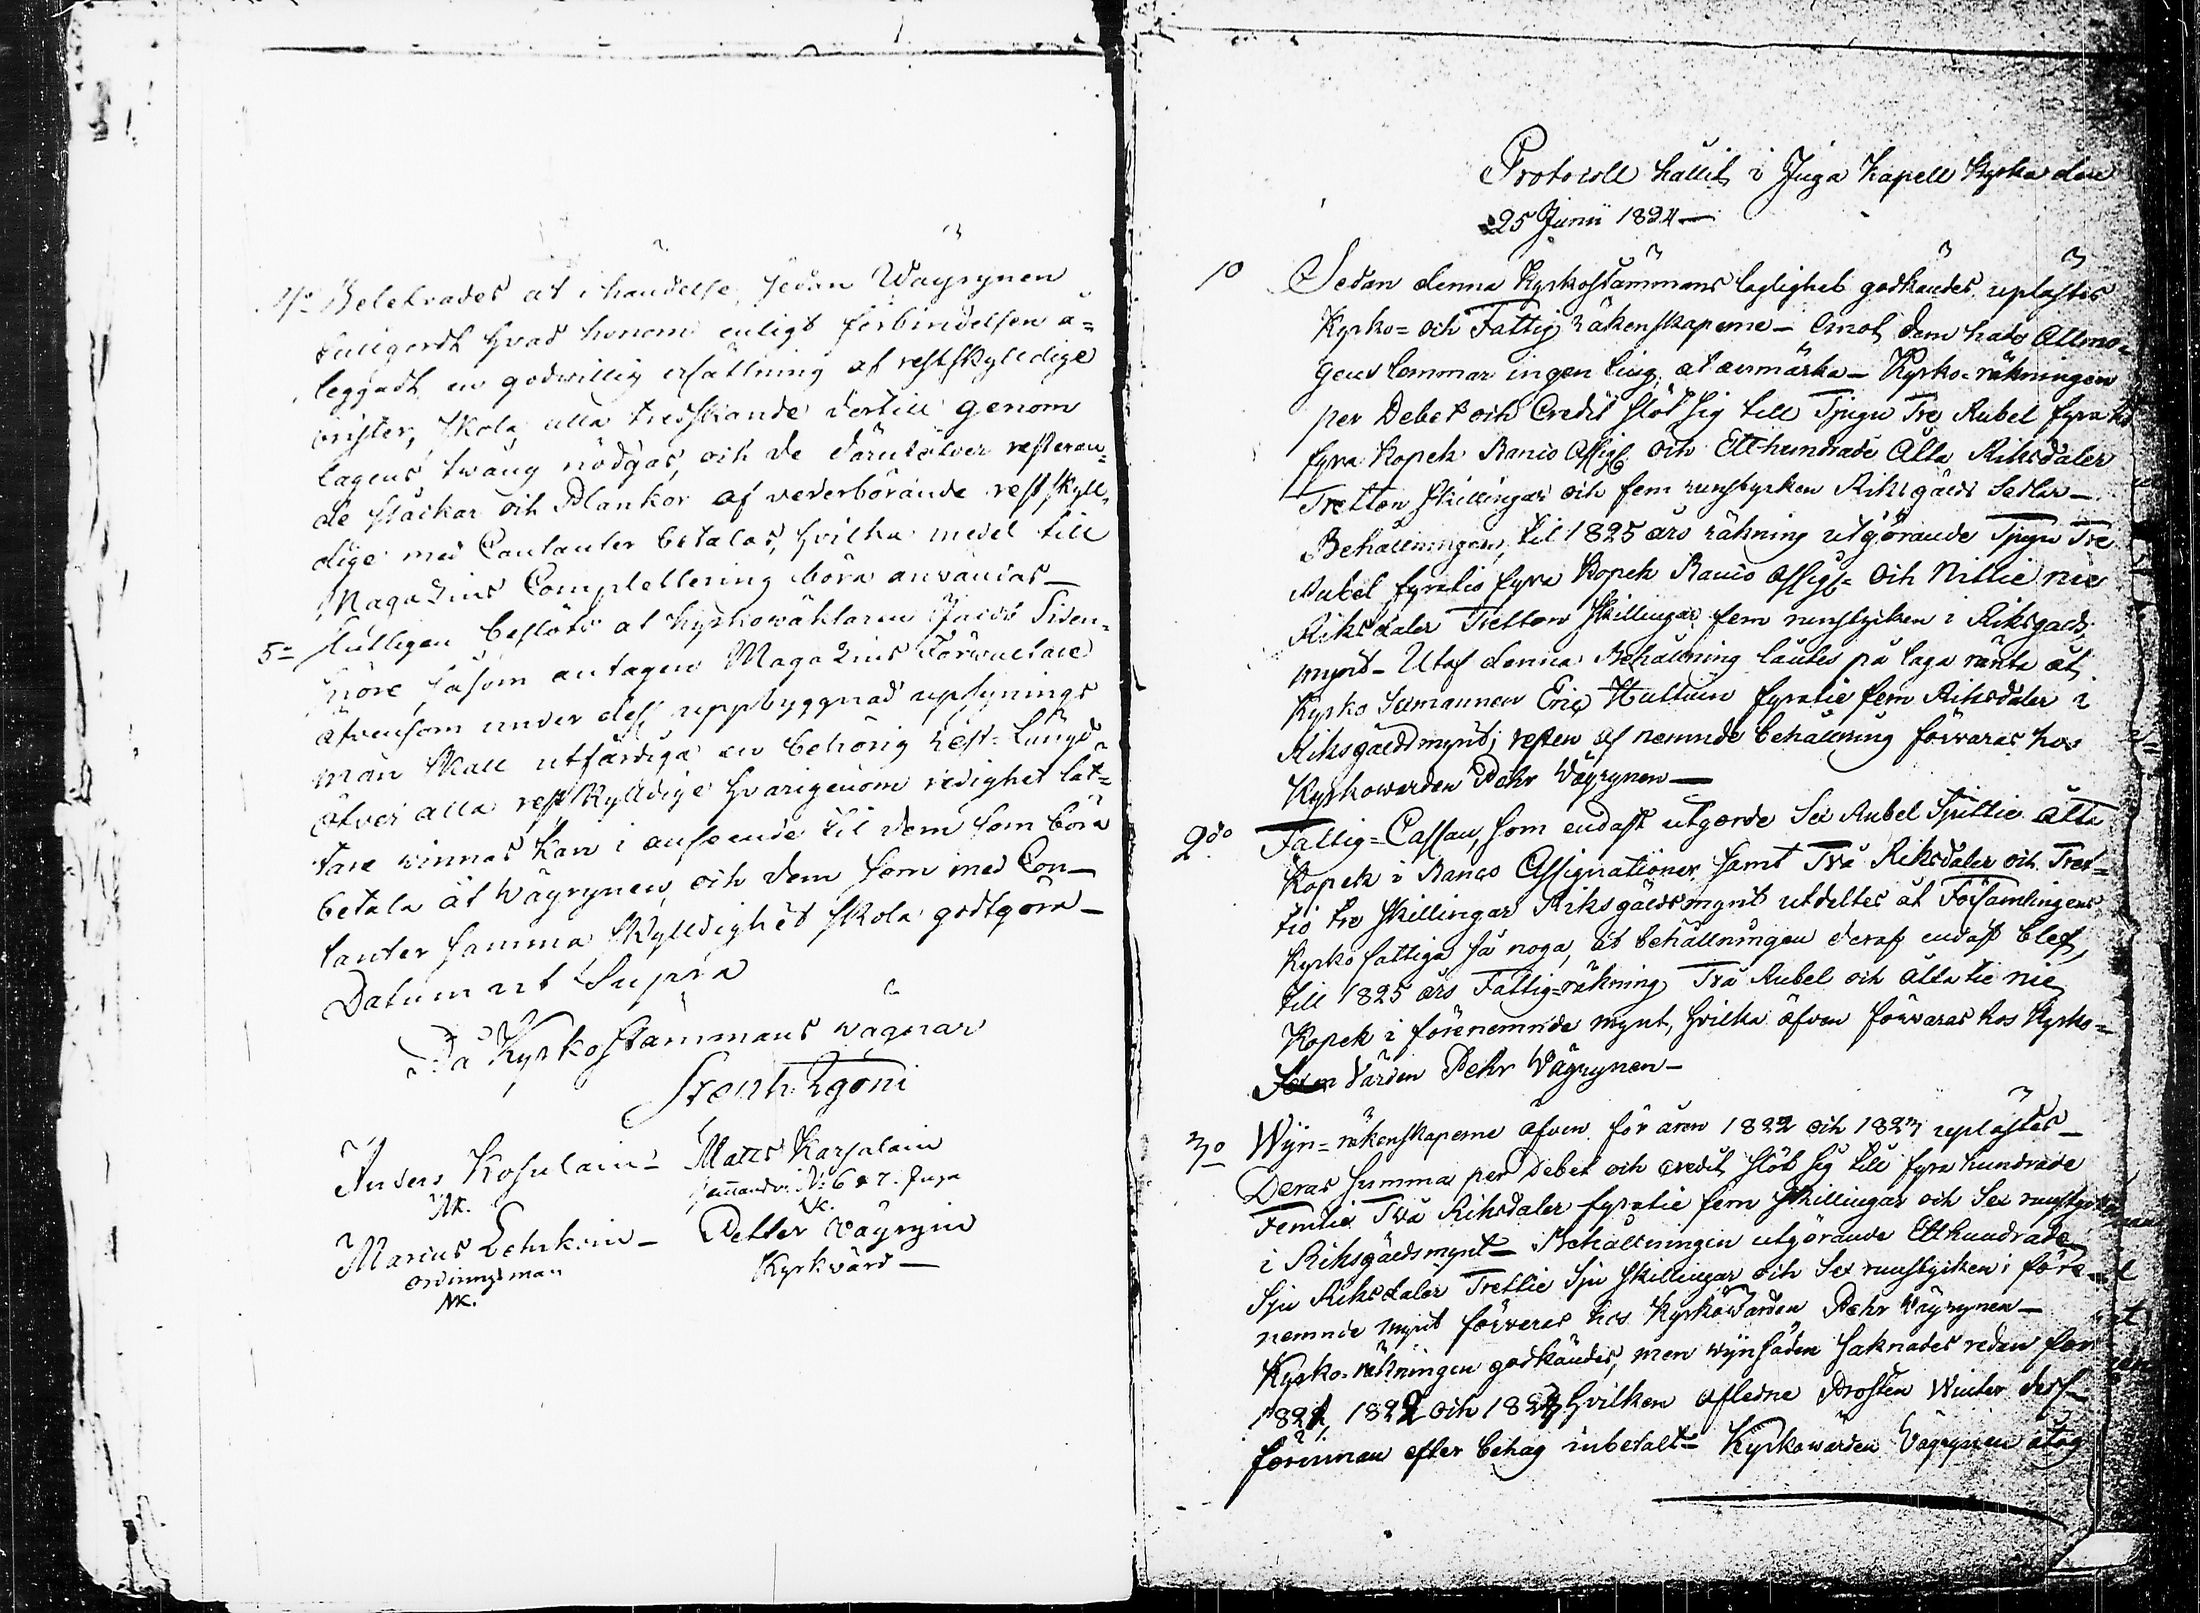 4o Beletrades at i händelse sedan Wäyrynen
fullgordt hvad honom enligt förbindelsen å=
leggadt en godwillig ersättning af restskylldige
brister, skola alla tredskande dertill genom
lagens twång nödgas, och de därutöfver resteran=
de stäckar och Plankor af vederbörande restskyll=
dige med Contanter betalas, hvilka medel till
Magazins Complettering böra användas—
5o Slutligen beslöts at kyrkowäktaren Jacob Siden=
snöre, såsom antagen Magazins Förwaltare
äfvensom under dess uppbyggnad uplysnings
man skall utfärdiga en behörig Rest=längd
öfver alla restskylldige hvarigenom redighet lät=
tare winnas kan i anseende til dem som böra
betala åt Wäyrynen, och dem som med Con—
tanter samma skylldighet skola godtgöra—
Datum ut Supra
På Kyrkostämmans wägnar
Stenh: Zgöni
Anders Kosulain— Matts Karsalain
NK. No 6 & 7. Juga
NK.
Marcus Lehikoin— Petter Wäyryin
Ordningsman Kyrkvärd—
NK.
Protocoll hållit i Juga Kapell Kyrka den
25 Junii 1824—
1o Sedan denna Kyrkostämmans laglighet godkändes uplästes
Kyrko= och Fattig räkenskaperne— Emot dem hade Allmo=
gens lemmar ingen ting at anmärka— Kyrko=räkningen
per Debet och Credit slöt sig till Tjugu Tre Rubel fyratio
fyra Kopek Banco Assig: och Etthundrade Åtta Riksdaler
Tretton skillingar och fem runstycken Riksgälds Sedlar—
Behållningen, til 1825 års räkning utgörande Tjugu Tre
Rubel fyratio fyra Kopek Banco Assig= och Nittie nie
Riksdaler Tretton skillingar fem runstycken i Riksgälds
mynt— Utaf denna Behållning låntes på laga ränta åt
Kyrko Sexmannen Eric Hultuin fyratie fem Riksdaler i
Riksgäldsmynt; resten af nemnde behållning förvaras hos
Kyrkowärden Pehr Wäyrynen—
2do Fattig=Cassan, som endast utgorde Sex Rubel Sjuttie åtta
Kopek i Banco Assignationer samt Två Riksdaler och Tret=
tio tre skillingar Riksgäldsmynt utdeltes åt Församlingens
Kyrko fattiga så noga, at behållningen deraf endast blef,
till 1825 års Fattig=räkning Två Rubel och åtta tie nie
Kopek i förenemnde mynt, hvilka äfven förvaras hos Kyrko=
värden Pehr Wäyrynen—
3o Wijn=räkenskaperne äfven för åren 1822 och 1823 uplästes—
Deras summa per Debet och Credit slöt sig till fyra hundrade
Femtie Två Riksdaler fyratie fem skillingar och Sex runstycken
i Riksgäldsmynt— Behållningen utgörande Etthundrade
Sju Riksdaler Trettie sju skillingar och Sex runstycken i före=
nemnde mynt förvaras hos Kyrkowärden Pehr Wäyrynen—
Kyrko=räkningen godkändes, men wijnsäden saknades redan för
1821, 1822 och 1823 hvilken afledne Prosten Winter dess=
förinnan efter behag inbetalt— Kyrkowärden Wäyrynen åtog